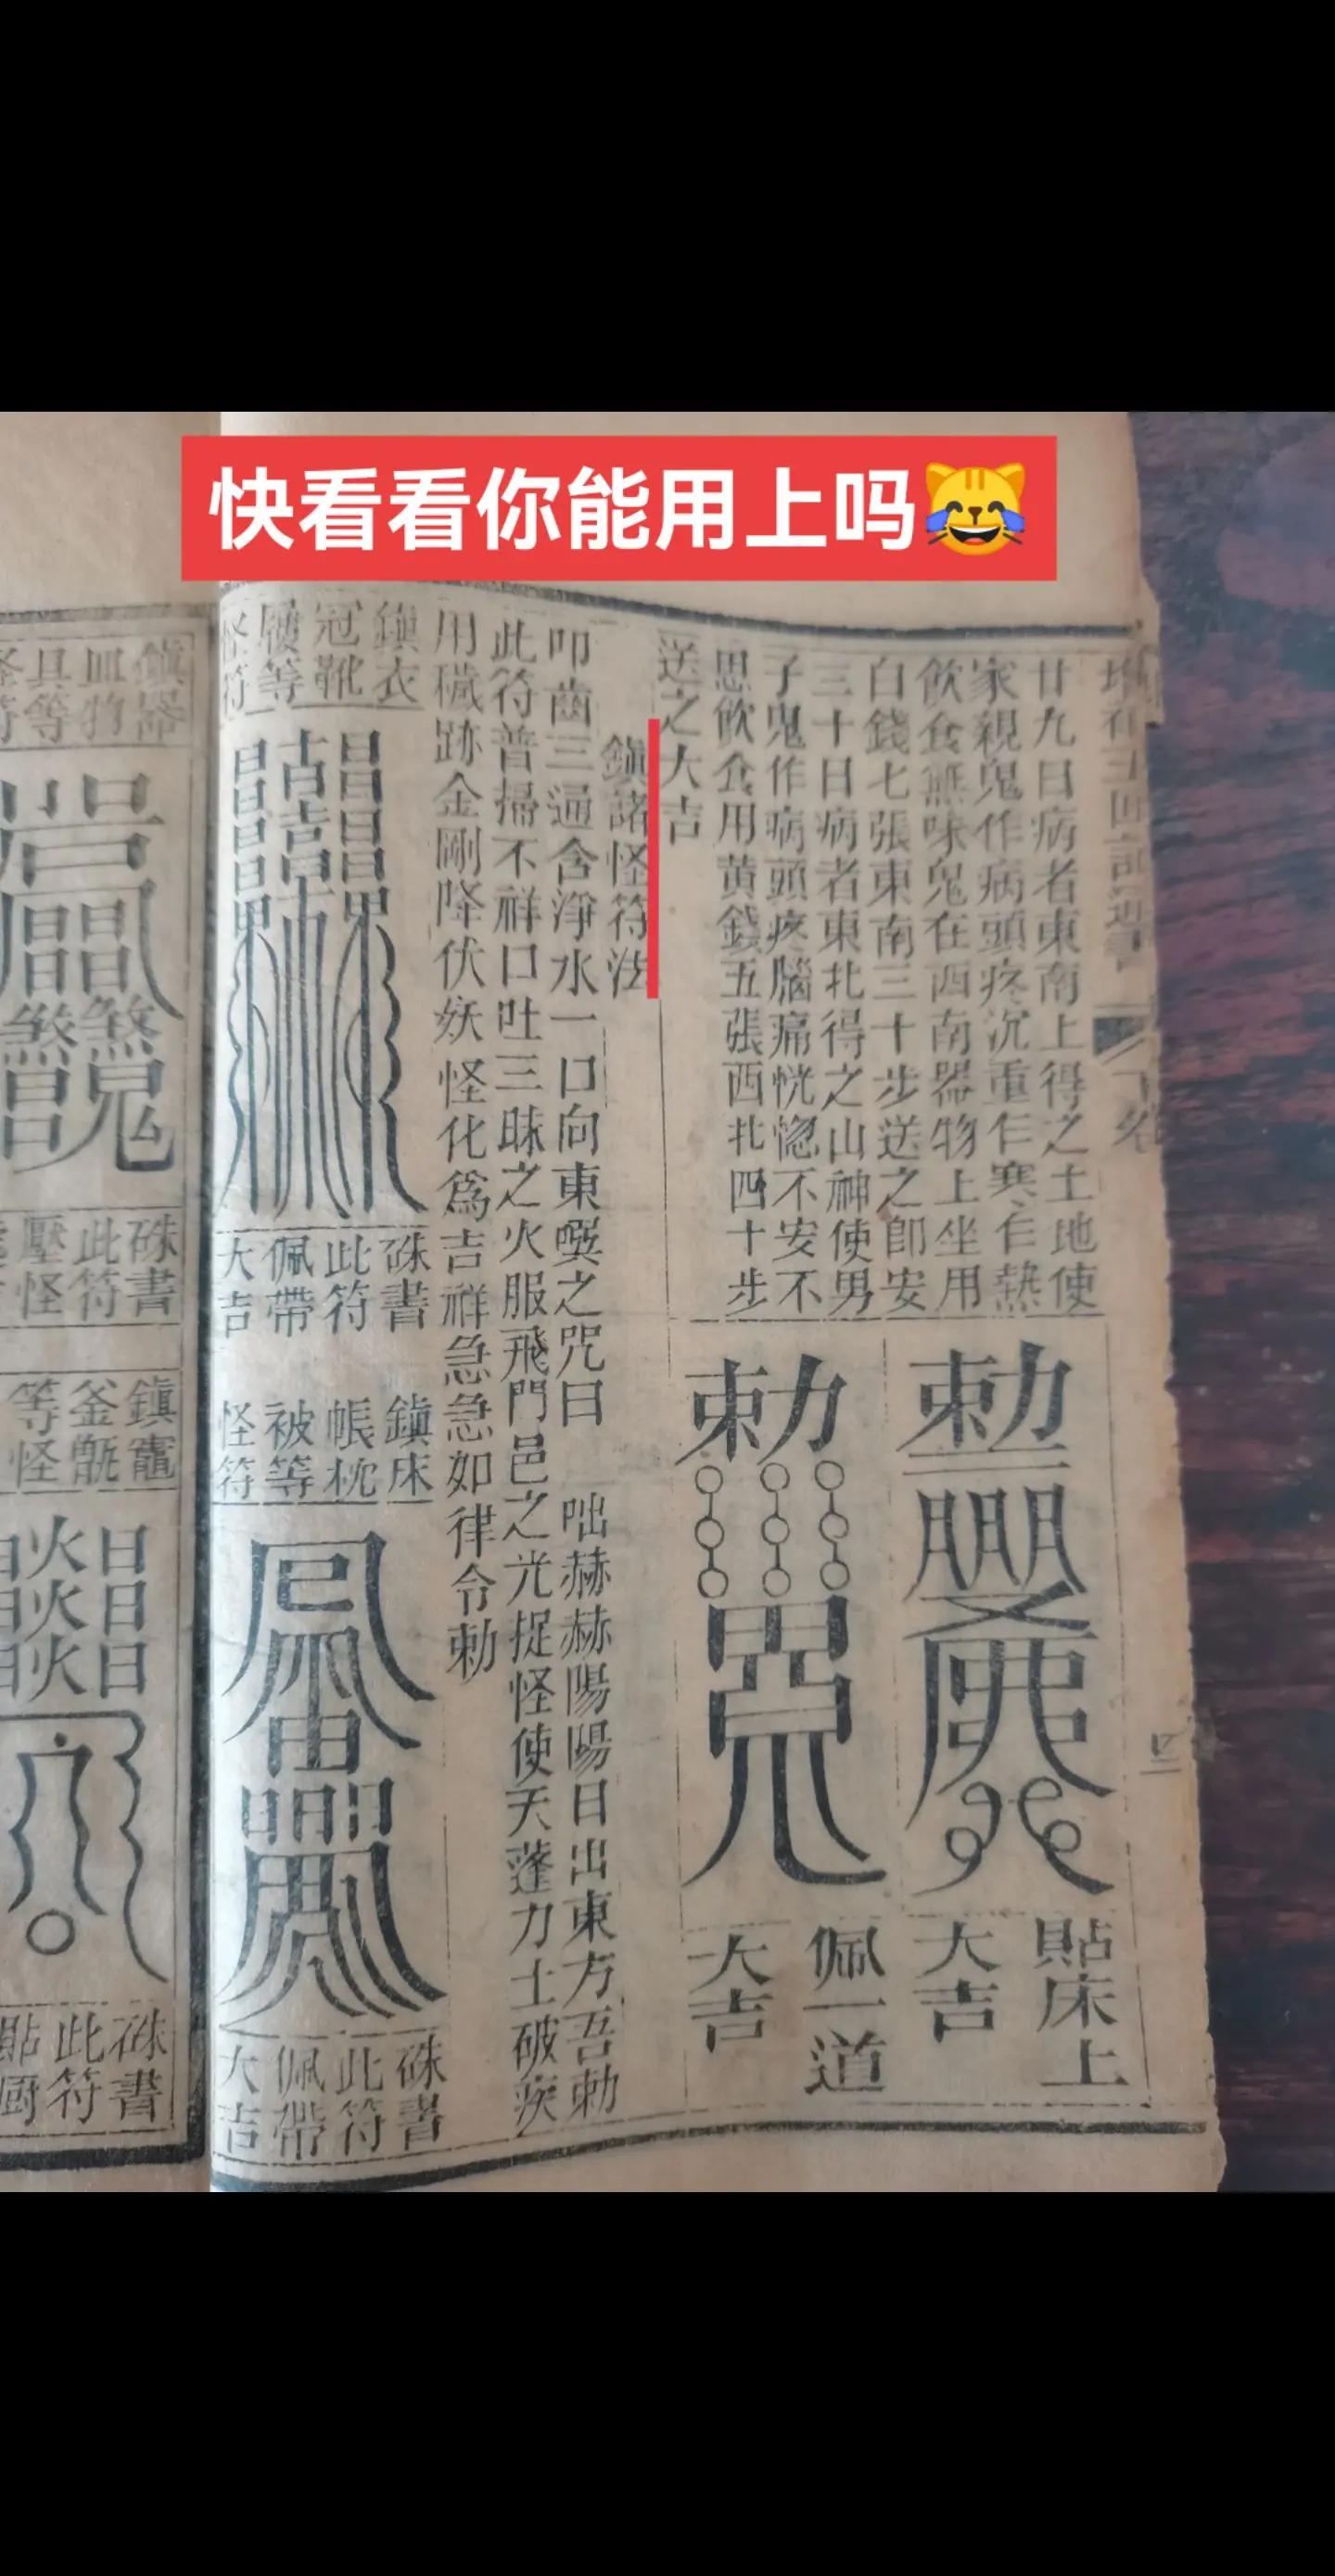 快看看你能用上吗😹
廿九日病者東南上得之土地使
家親鬼作病頭疼沉重乍寒乍熱
飲食無味鬼在西南器物上坐用
白錢七張東南三十步送之卽安
三十日病者東北得之山神使男
子鬼作病頭疼腦痛恍惚不安不
思飲食用黃錢五張西北四十步
送之大吉
勅
貼床上
大吉
勅
佩一道
大吉
鎮諸怪符法
叩齒三通含淨水一口向東噀之咒曰 咄赫赫陽陽日出東方吾勅
此符普掃不祥口吐三昧之火服飛門邑之光捉怪使天蓬力士破疾
用穢跡金剛降伏妖怪化爲吉祥急急如律令勅
鎮衣
冠靴
履等
怪符
硃書
此符
佩帶
大吉
鎮床
帳枕
被等
怪符
硃書
此符
佩帶
大吉
鎮器
皿物
具等
怪符
硃書
此符
壓怪
鎮竈
釜甑
等怪
硃書
此符
貼厨